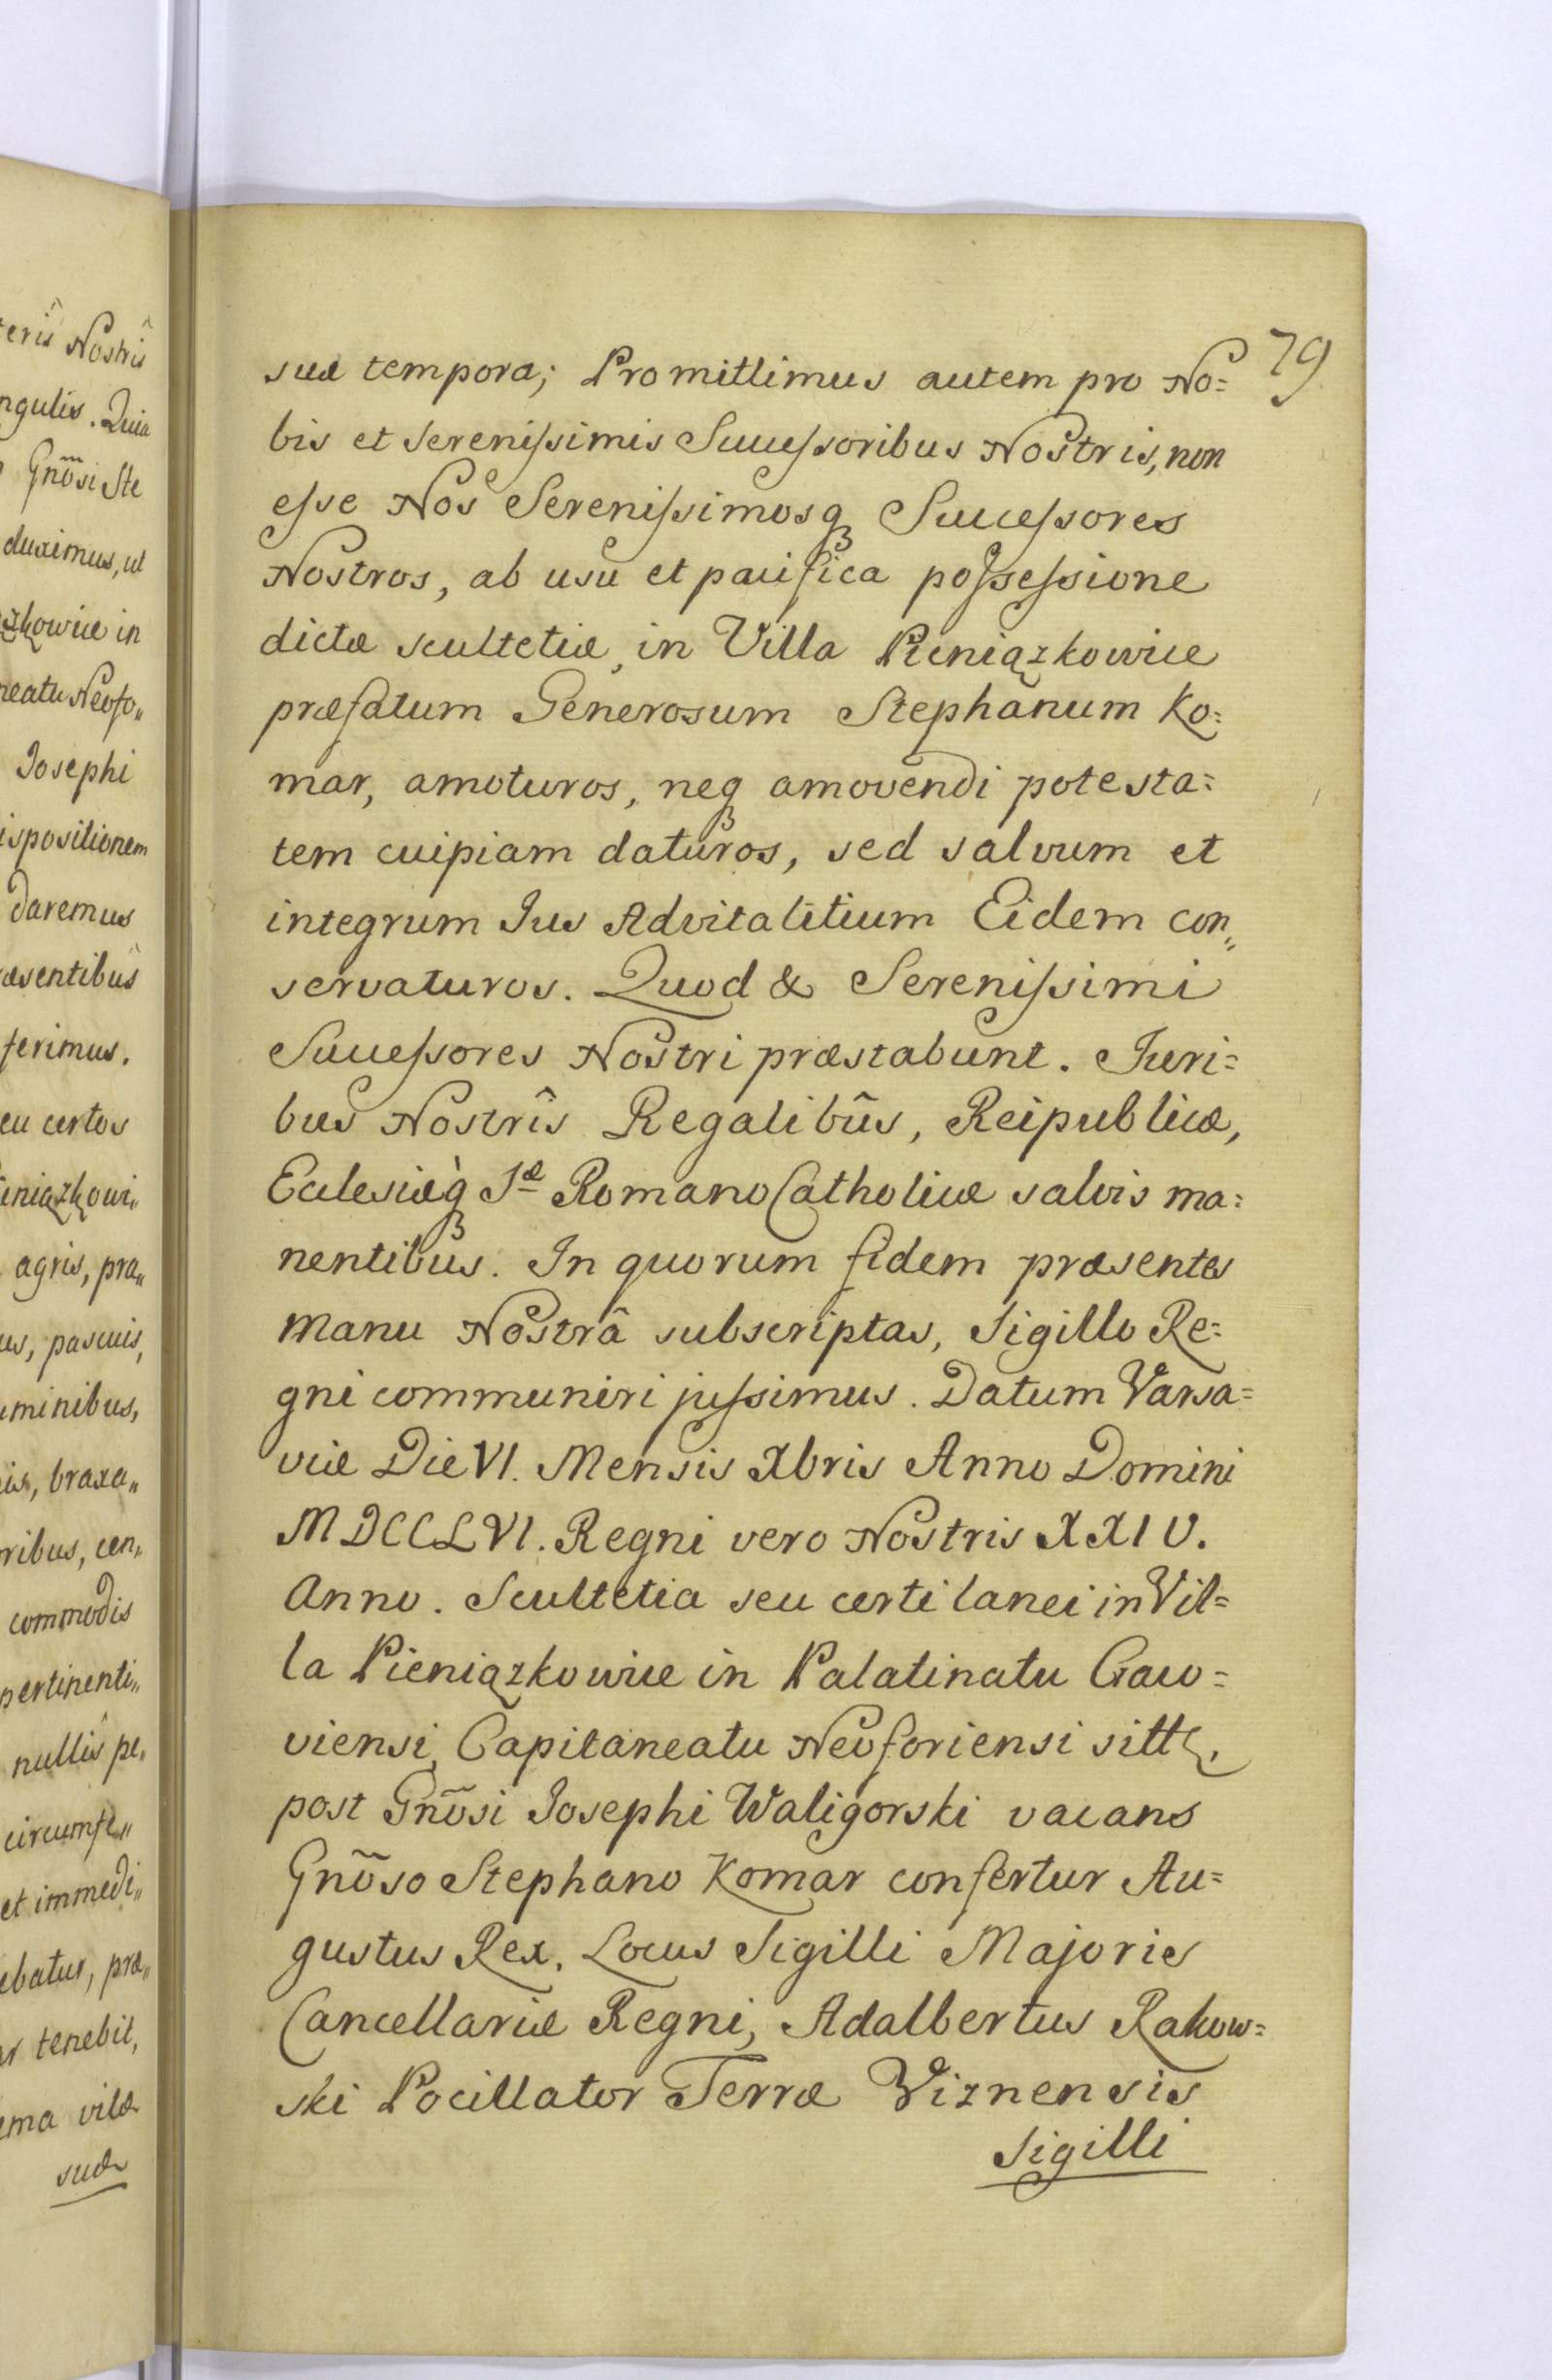 teris Nostris
ngulis. Quia
Gnosi Ste
duximus, ut
zkowice in
neatu Neofo„
Josephi
ispositionem
daremus
æsentibûs
ferimus.
eu certos
ieniązkowi„
agris, pra„
us, pascuis,
uminibus,
is, braxa„
oribus, cen„
commodis
pertinenti„
nullis pe„
circumfe„
et immedi„
ebatur, præ„
ar tenebit,
ema vitæ
suæ
79
suæ tempora; Promittimus autem pro No=
bis et Sereniſsimis Succeſsoribus Nostris, non
eſse Nos Sereniſsimosq̨ Succeſsores
Nostros, ab usu et pacifica poſseſsione
dictæ scultetiæ, in Villa Pieniązkowice
præfatum Generosum Stephanum Ko=
mar, amoturos, neq̨ amovendi potesta=
tem cuipiam daturos, sed salvum et
integrum Jus Advitalitium Eidem con„
servaturos. Quod & Sereniſsimi
Succeſsores Nostri præstabunt. Juri=
bus Nostrîs Regalibûs, Reipublicæ,
Ecclesiæq̨ Sæ Romano Catholicæ salvis ma=
nentibûs. In quorum fidem præsentes
manu Nostrâ subscriptas, Sigillo Re=
gni communiri juſsimus. Datum Varsa=
viæ Die VI. Mensis Xbris Anno Domini
MDCCLVI. Regni vero Nostris XXIV.
Anno. Scultetia seu certi lanei in Vil=
la Pieniązkowice in Palatinatu Craco=
viensi, Capitaneatu Neoforiensi sitt.
post Gnõsi Josephi Waligorski vacans
Gnõso Stephano Komar confertur Au=
gustus Rex. Locus Sigilli Majoris
Cancellariæ Regni, Adalbertus Rakow=
ski Pocillator Terræ Viznensis
Sigilli